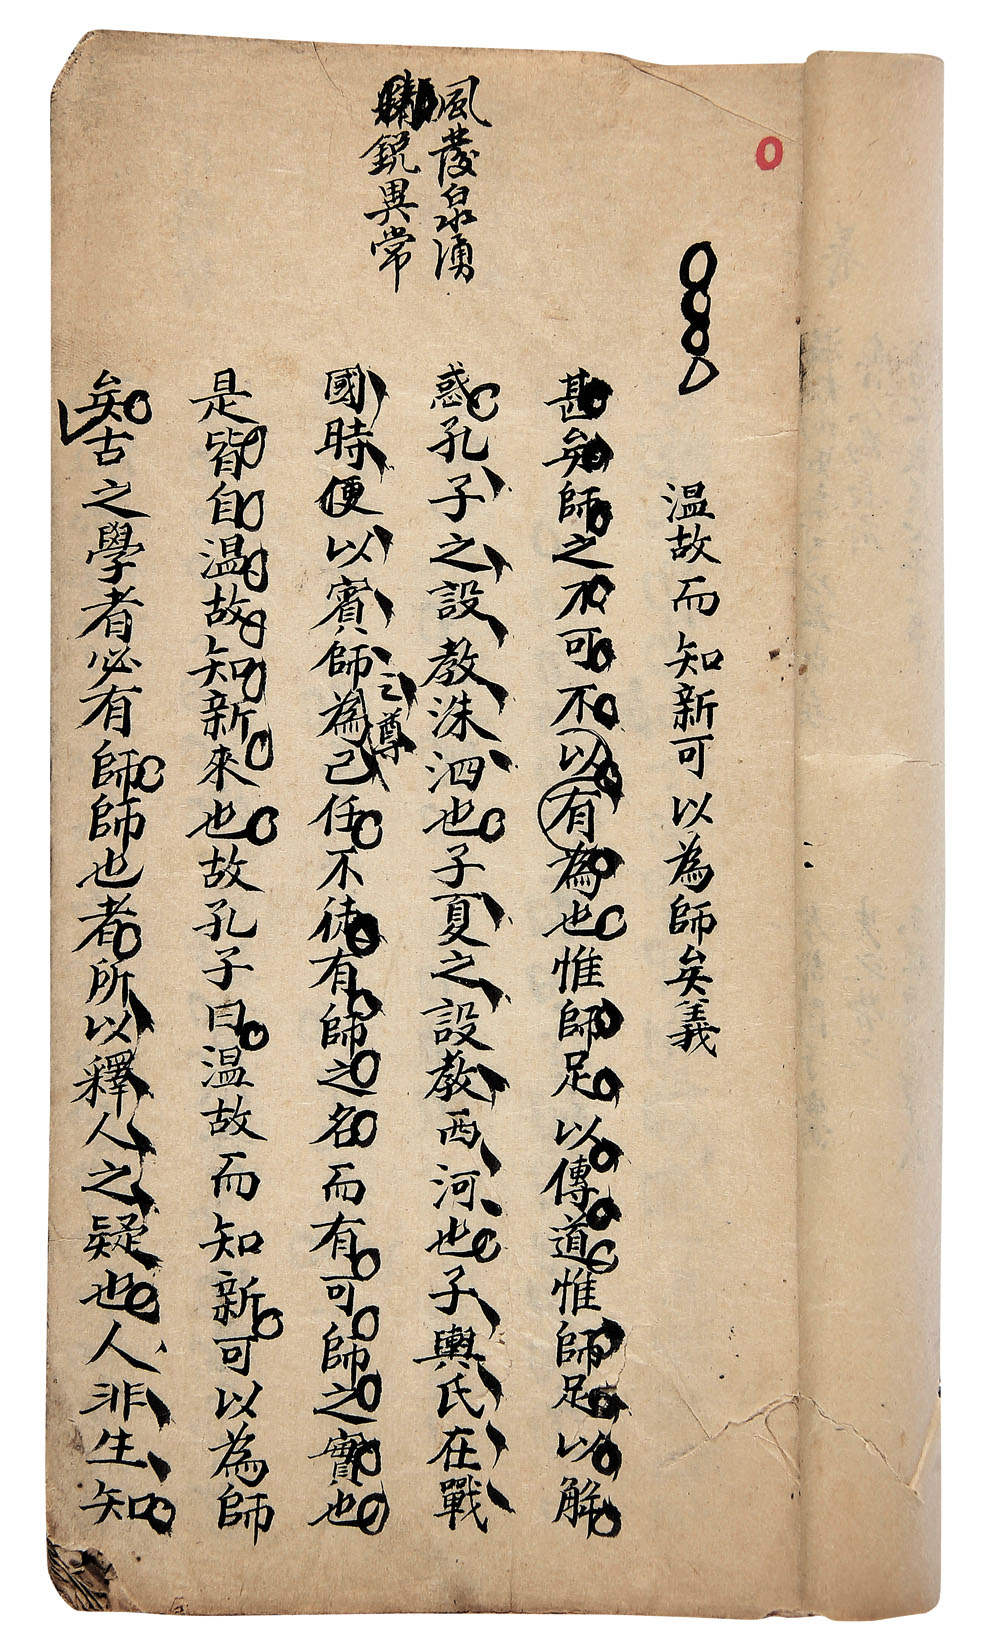 温故而知新可以為師矣義
甚矣師之不可不以有為也惟師足以傳道惟師足以解
惑孔子之設教洙泗也子夏之設教西河也子輿氏在戰
國時便以賓師之尊為己任不徒有師之名而有可師之實也
是皆自温故知新來也故孔子曰温故而知新可以為師
矣古之學者必有師師也者所以釋人之疑也人非生知
風發泉湧
精銳異常